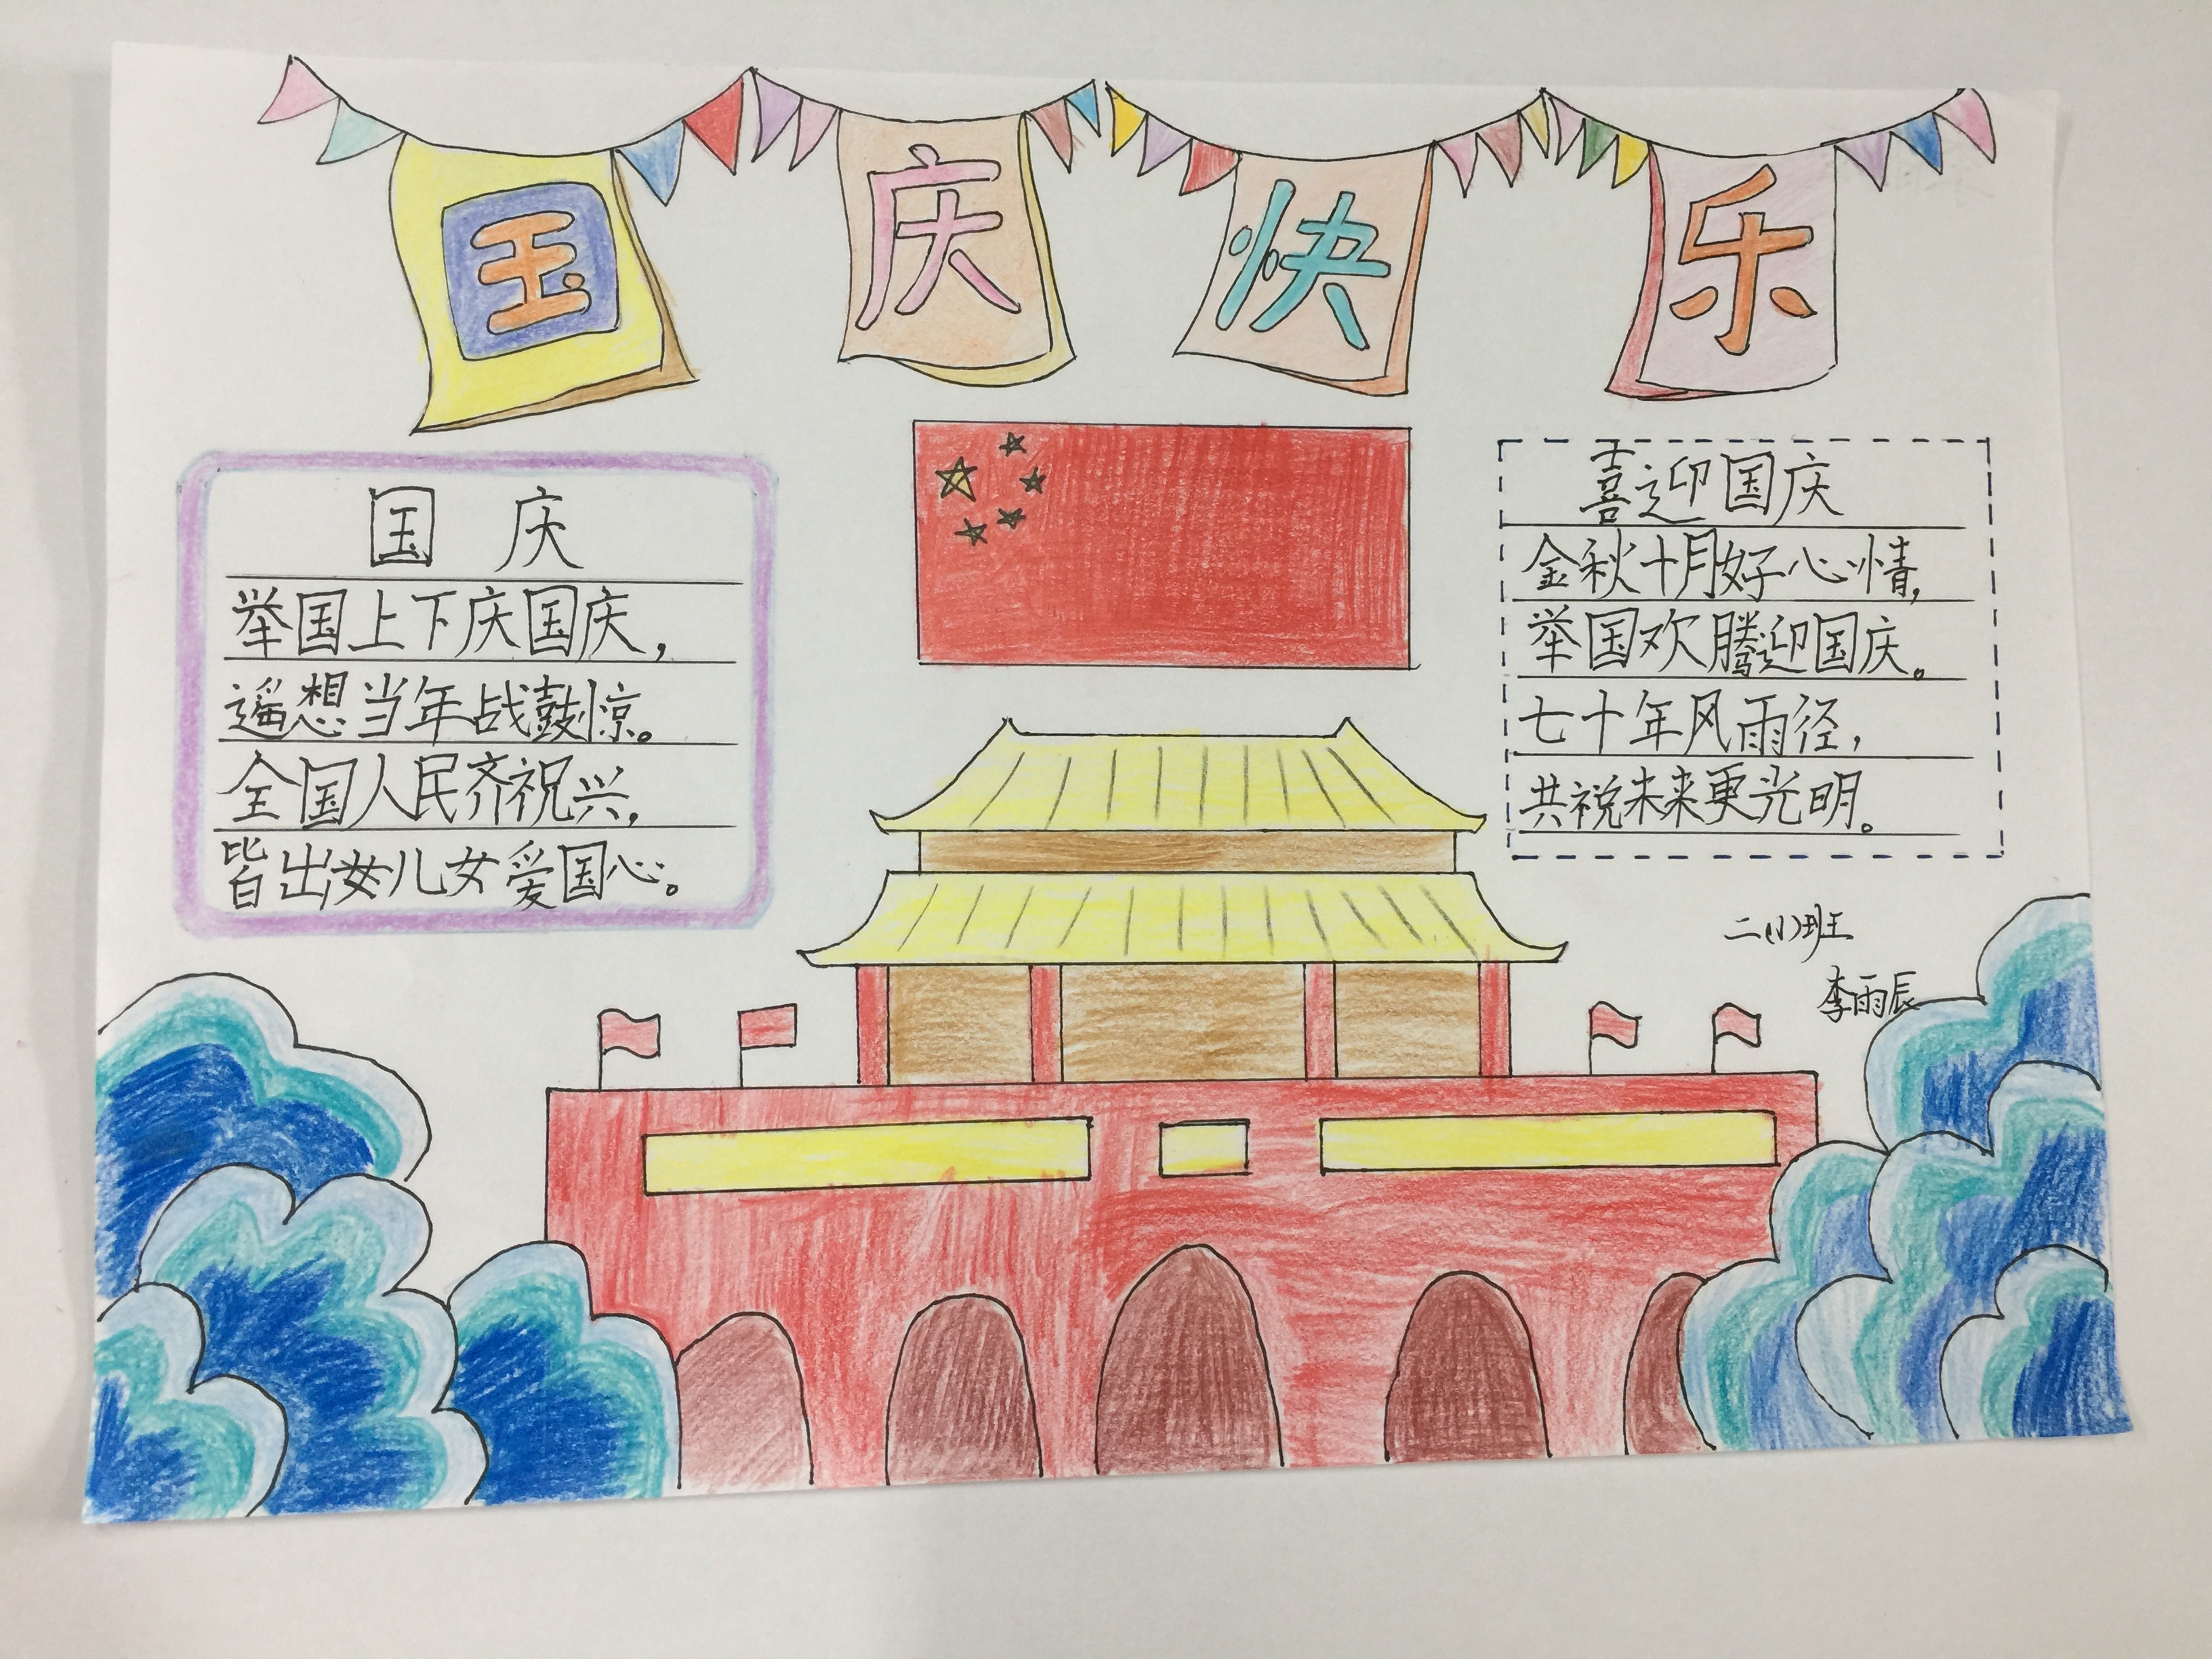 国庆快乐
国庆
举国上下庆国庆，
遥想当年战鼓惊。
全国人民齐祝兴，
皆出女儿女爱国心。
喜迎国庆
金秋十月好心情，
举国欢腾迎国庆。
七十年风雨径，
共祝未来更光明。
二(1)班
李雨辰